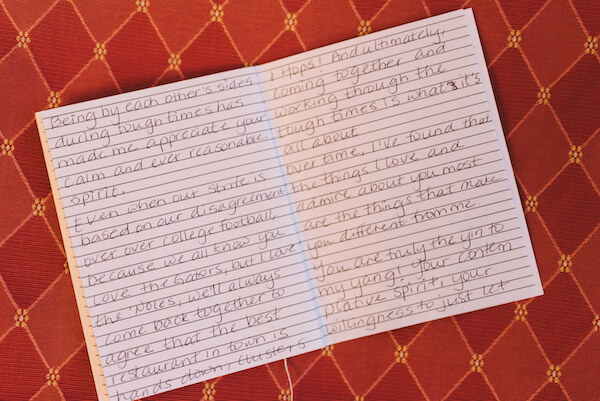 Being by each other's sides
during tough times has
made me appreciate your
calm and ever reasonable
spirit.
Even when our strife is
based on our disagreement
over over college football,
because we all know you
love the Gators, but I love
the 'Noles, we'll always
come back together to
agree that the best
restaurant in town is
hands down, Clusters
& Hops! And ultimately,
coming together and
working through the
tough times is what it's
all about
over time, I've found that
the things I love and
admire about you most
are the things that make
you different from me.
you are truly the yin to
my yang! Your contem
plative spirit, your
willingness to just let